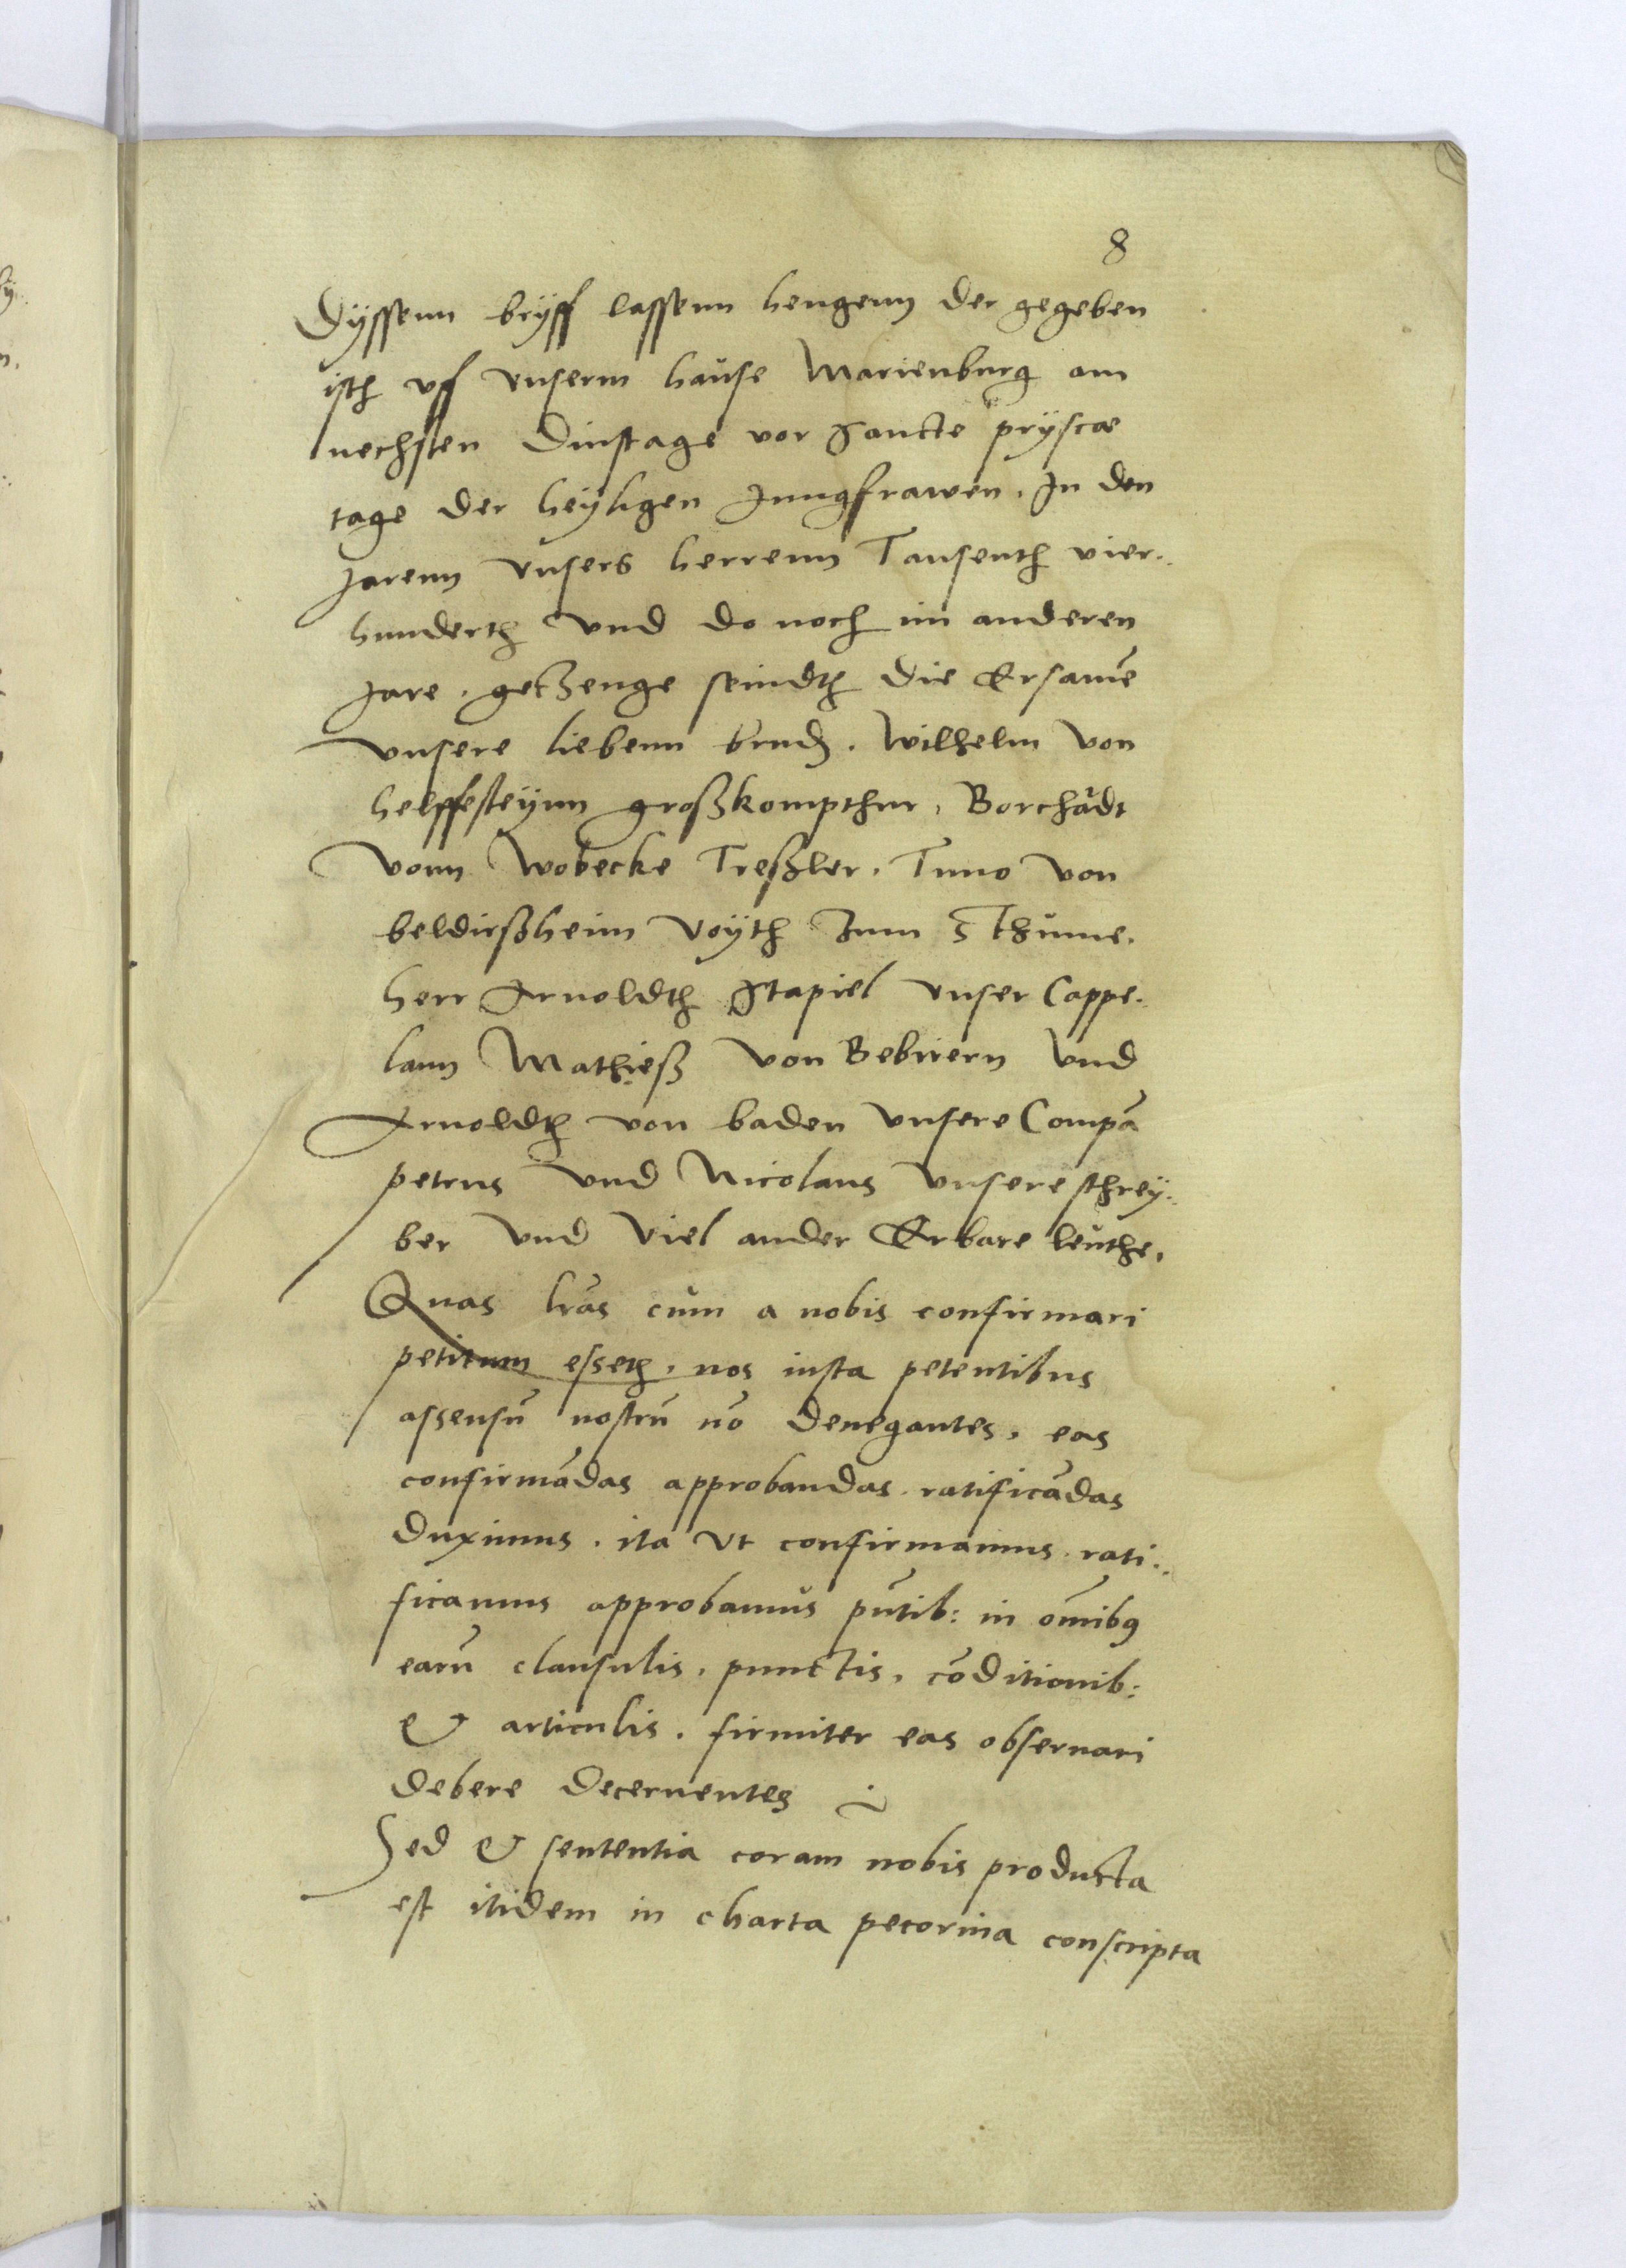 8
Dyssenn bryff lassenn hengenn der gegeben
isth uff unserm hause Marienburg am
nechsten Dinstage vor Sancte pryscae
tage der heyligen Jungfrawen. In den
Jarenn unsers herrenn Tausenth vier..
hunderth und do noch im anderen
Jare. getzenge seindth die Ersamē
unsere liebenn brud. Wilhelm von
helffesteynn großkompthur, Borchadt
vonn Wobecke Treßler. Tuno von
beldirßheim Voyth zum Sthume.
herr Arnoldth Stapiel unser Cappe.
lann Mathieß von Bebirern und
Arnoldth von baden unsere Compā
petrus und Nicolaus unsere schrey..
ber und viel ander Erbare leuthe.
Quas lrās cum a nobis confirmari
petitum esseth, nos iusta petentibus
assensū nostrū nō denegantes, eas
confirmādas approbandas ratificādas
duximus. ita ut confirmamus rati..
ficamus approbamus pn̄tib: in om̄ibꝰ
earū clausulis, punctis, cōditionib:
& articulis. firmiter eas observari
debere decernentes
Sed & sententia coram nobis producta
est itidem in charta pecorina conscripta